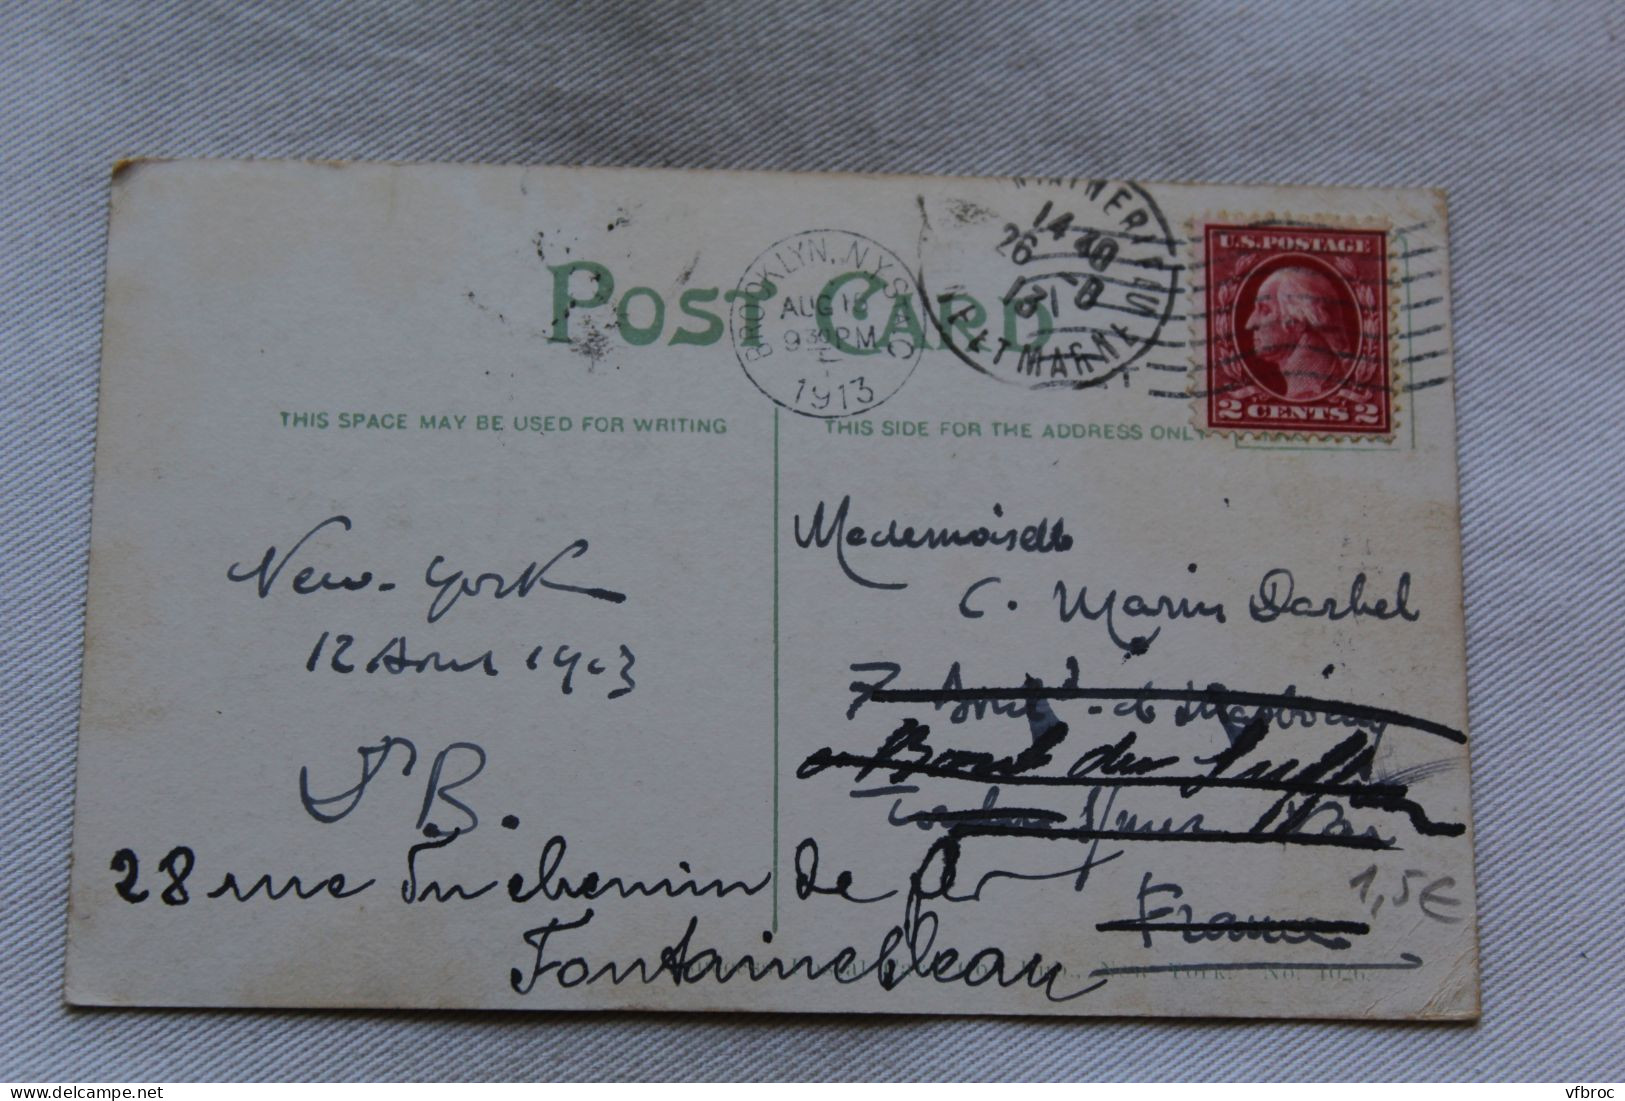 POST CARD
BROOKLYN, N.Y. STA. C
AUG 15
9 30 PM
1913
14 40
26 8
13
SEINE ET MARNE
U.S. POSTAGE
2 CENTS 2
THIS SPACE MAY BE USED FOR WRITING
THIS SIDE FOR THE ADDRESS ONLY
New-York
12 Aout 1913
P B.
Mademoiselle
C. Marin Darbel
7 Boul^d de
Bout du
Var
France
1,5€
28 rue du chemin de fer
Fontainebleau
New York. No. 1026.
vfbroc